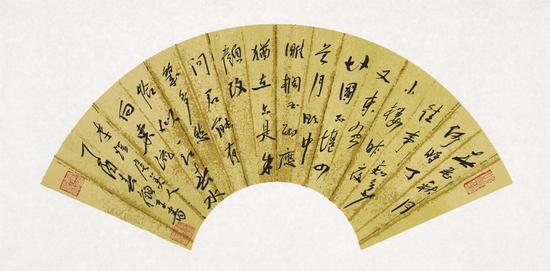 春花秋月
何時了
往事知多少
小樓昨夜
又東風
故國不堪回
首月明中
雕闌玉砌應
猶在只是朱
顏改
問君能有
幾多愁
恰似一江春水
向東流
李後主虞美人
丁酉